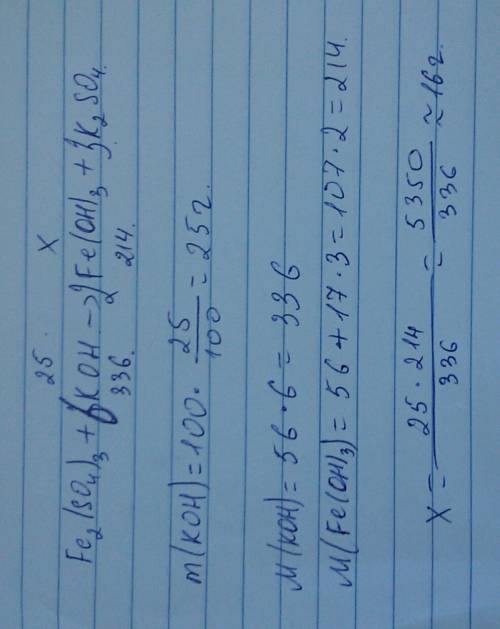 25 X
Fe₂(SO₄)₃ + 6KOH → 2Fe(OH)₃ + 3K₂SO₄.
336. 214.
m(KOH) = 100 · 25/100 = 25г.
M(KOH) = 56 · 6 = 336
M(Fe(OH)₃) = 56 + 17 · 3 = 107 · 2 = 214.
X = 25 · 214/336 = 5350/336 ≈ 16г.